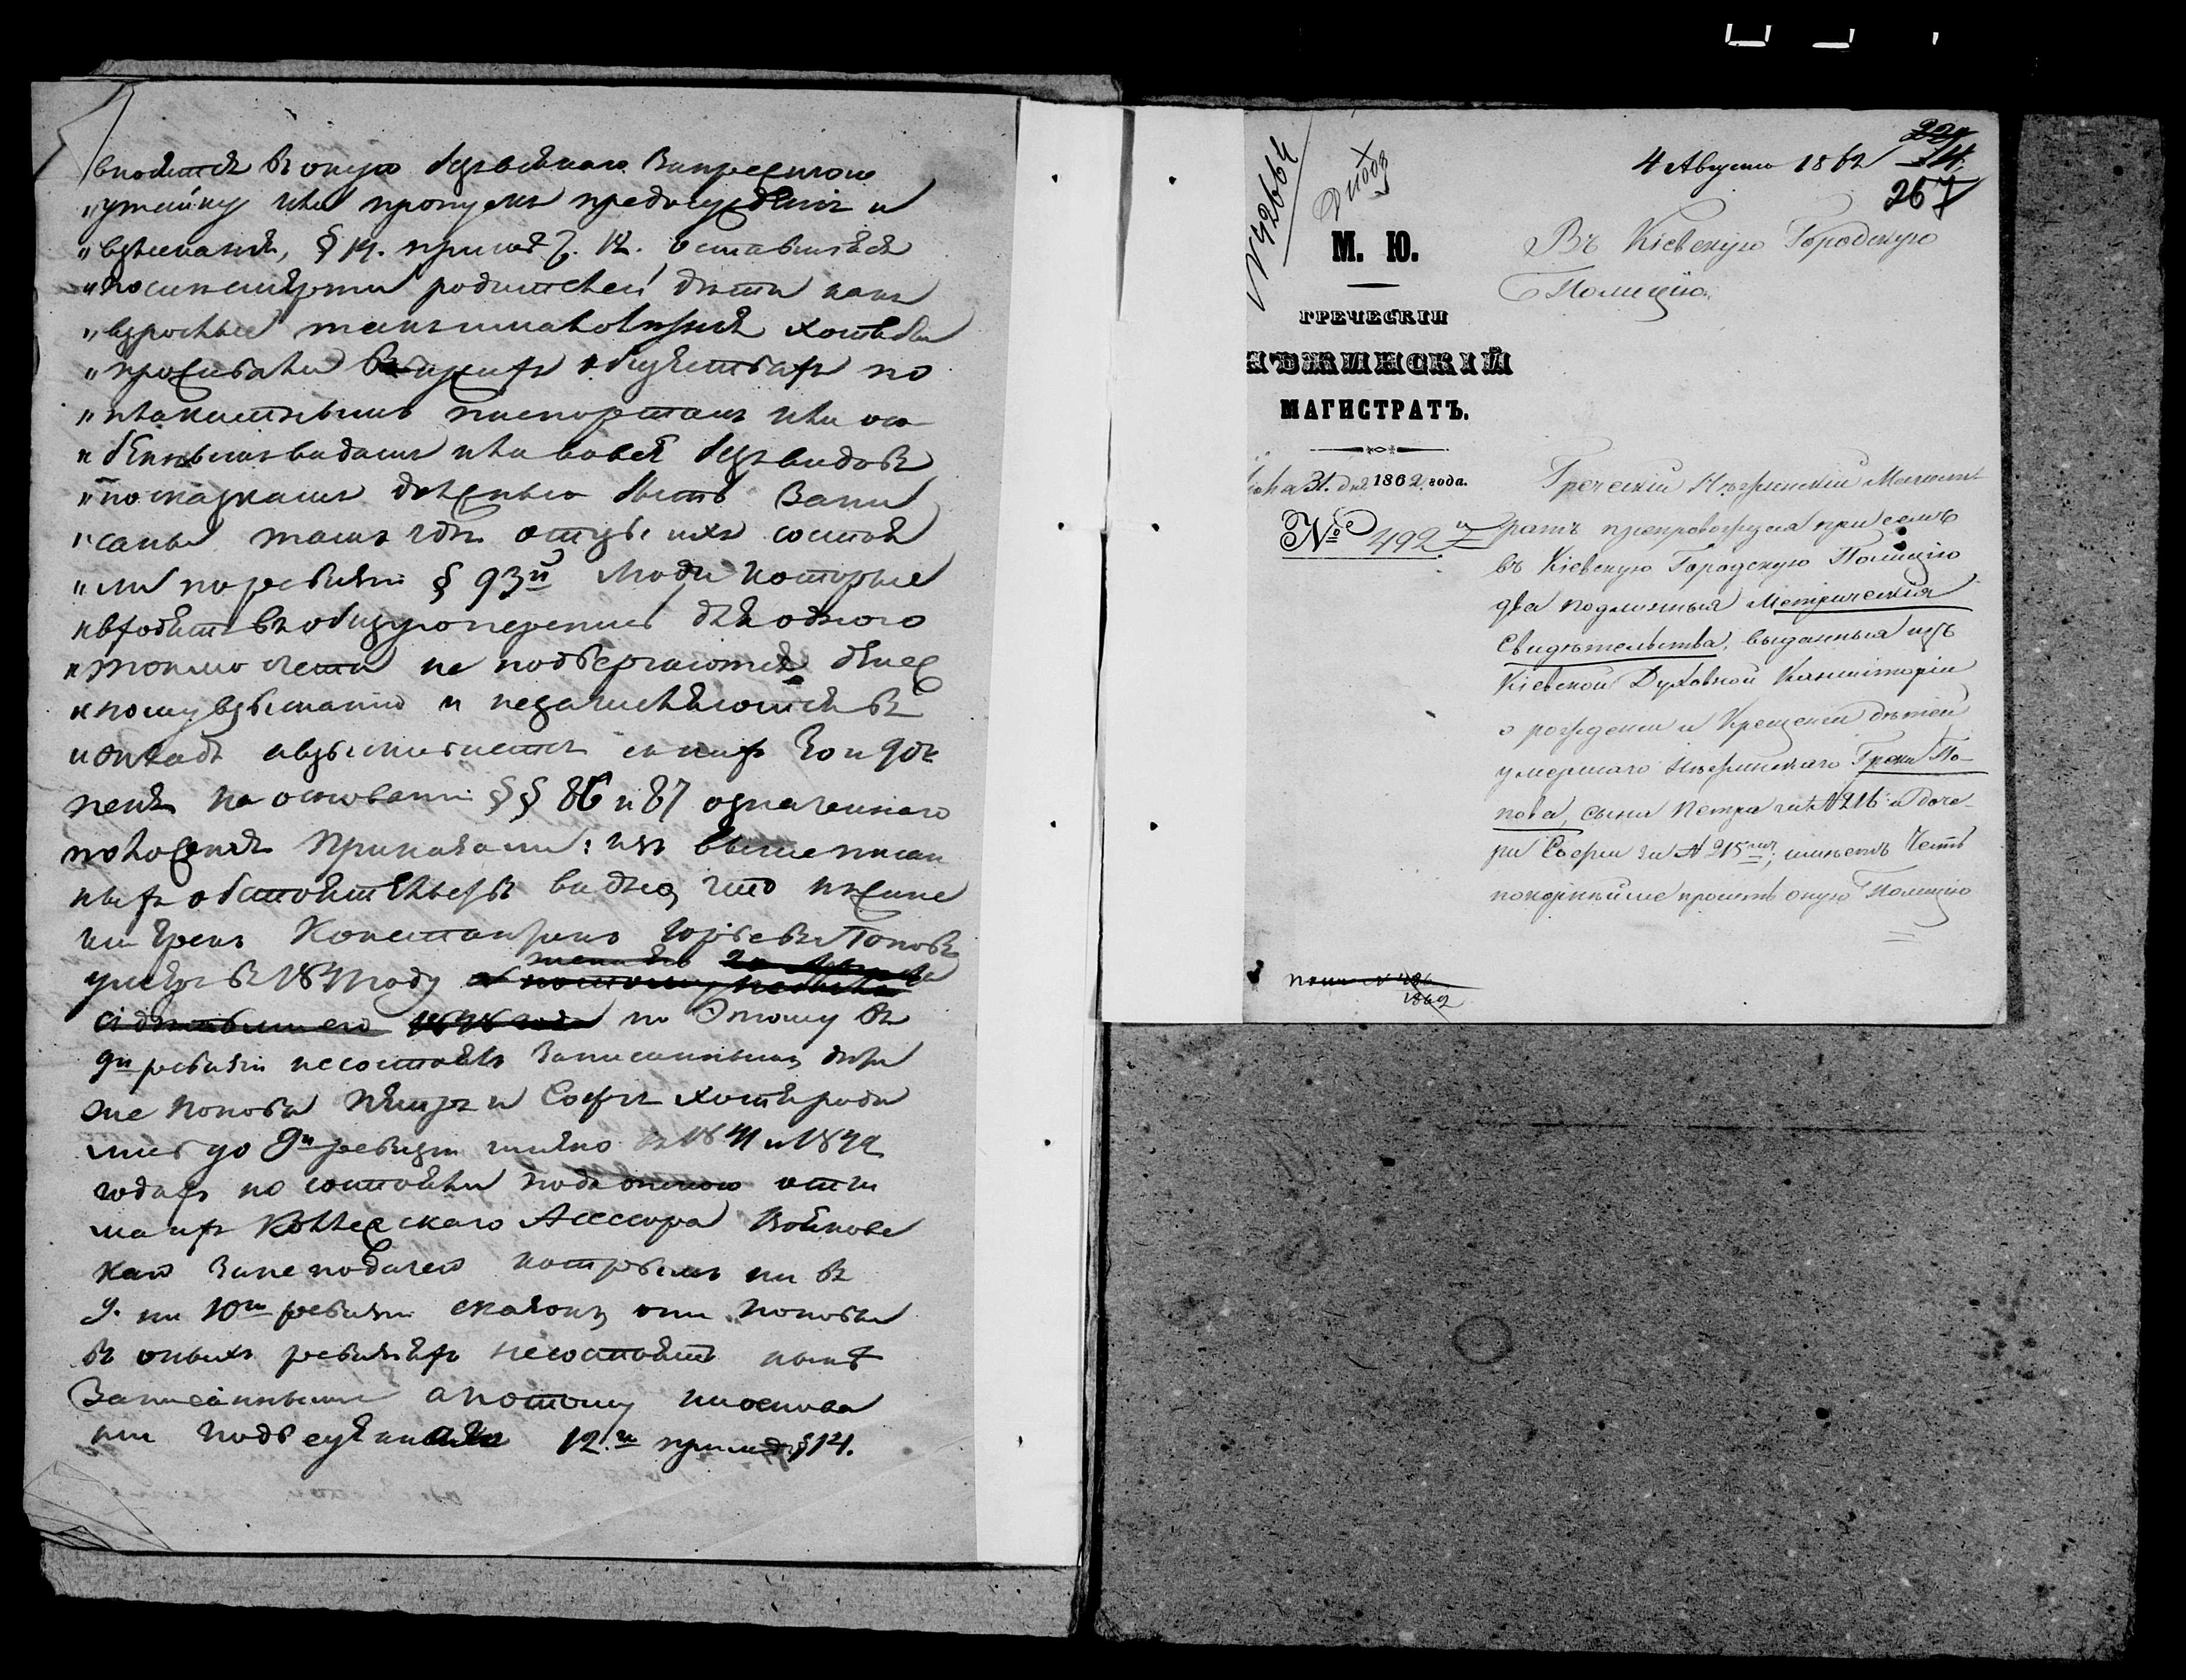 вносится въ оную безъ всякаго
"утайку или пропускъ предосужденія и
"взысканія, § 14. примѣч. 12. оставшіяся
"послѣ смерти родителей дѣти какъ
"взрослые такъ и малолѣтніе хотя бы
"проживали въ другихъ обществахъ по
"плакатнымъ паспортамъ или осо
"беннымъ видамъ или вовсе безъ видовъ
"по сказкамъ должны быть запи
"саны тамъ гдѣ отцы ихъ состоя
"ли по ревизіи § 93й люди которые
"входятъ въ общую перепись для одного
"токмо счета не подвергаются денеж
"ному взысканію и не зачисляются въ
"окладъ а взыскивается съ нихъ
пеня на основаніи §§ 86 и 87 означеннаго
положенія Приказали: изъ вышеписан
ныхъ обстоятельствъ видно, что нѣжинс
кій Грекъ Константинъ Юрьевъ Поповъ
умеръ въ 1841 году
по этому въ
9й ревизіи не состоялъ записаннымъ, дѣти
же Попова Петръ и Софья хотя роди
лись до 9й ревизіи именно въ 1841 и 1842
годахъ но состояли подъ опекою отчи
ма ихъ Коллежскаго Ассесора Войнов
каго за неподачею которымъ ни въ
9. ни 10й ревизіи сказокъ, они Поповы
въ оныхъ ревизіяхъ не состоятъ нынѣ
записанными а потому на основа
ніи 12.й примѣч. § 14.
№ 2664
4 Августа 1862
267
М. Ю.
ГРЕЧЕСКІЙ
НѢЖИНСКІЙ
МАГИСТРАТЪ.
Іюля 31. дня 1862 года.
№ 4927
Въ Кіевскую Городскую
Полицію.
Греческій Нѣжинскій Магист
ратъ препровождая при семъ
въ Кіевскую Городскую Полицію
два подлинныя Метрическія
Свидѣтельства, выданныя изъ
Кіевской Духовной Консисторіи
о рожденіи и Крещеніи дѣтей
умершаго Нѣжинскаго Грека По-
пова, сына Петра за № 216 и доче-
ри Софіи за № 215мъ, имѣетъ Честь
покорнѣйше просить оную Полицію
1862